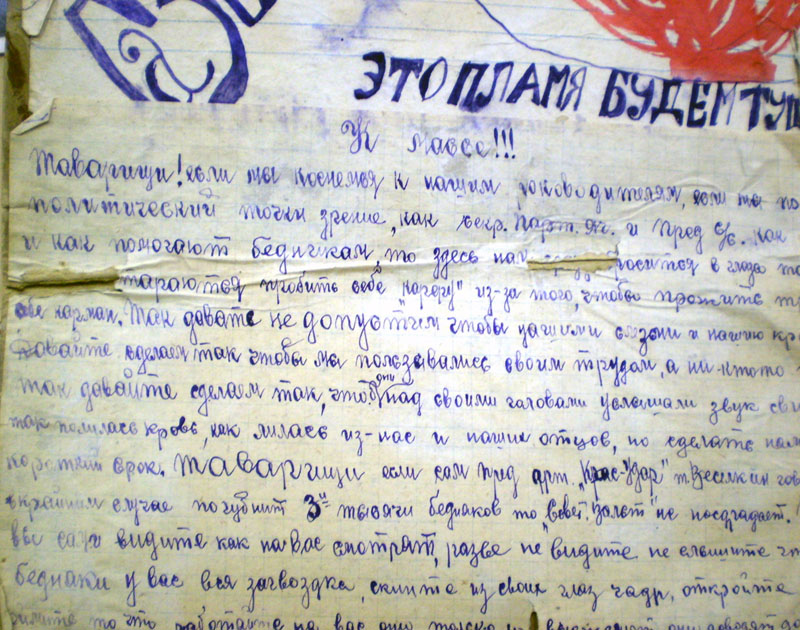 ЭТО ПЛАМЯ БУДЕМ ТУШ
К массе!!!
Таварищи! если мы коснемся к нашим роководителям, если мы по
политический точки зрение, как секр. парт. яч. и Пред с/с. как
и как помогают беднякам, то здесь нам росится в глаза
тараются пробить себе "кареру" из-за того, чтобы прожить
себе карман. Так давате не допустим чтобы нашими слезами и нашию кр
Давайте сделаем так чтобы мы ползавались своим трудом, а ни-ктото
так давайте сделаем так, чтобы они над своими галовами услышали звук
так полилась кровь, как лилась из-нас и наших отцов, но сделать
короткий срок. Таварищи если сам пред арт. "Крас-Удар" т. Веселкин гов
вкрайним случае погубит 3 тысячи бедняков то "Совет. Залет" не пострадает.
вы сами видите как на вас смотрят, разве не видите не слышите
бедняки у вас вся загвоздка, скинте из своих глаз чадр, откройте
то что работайте на вас они только